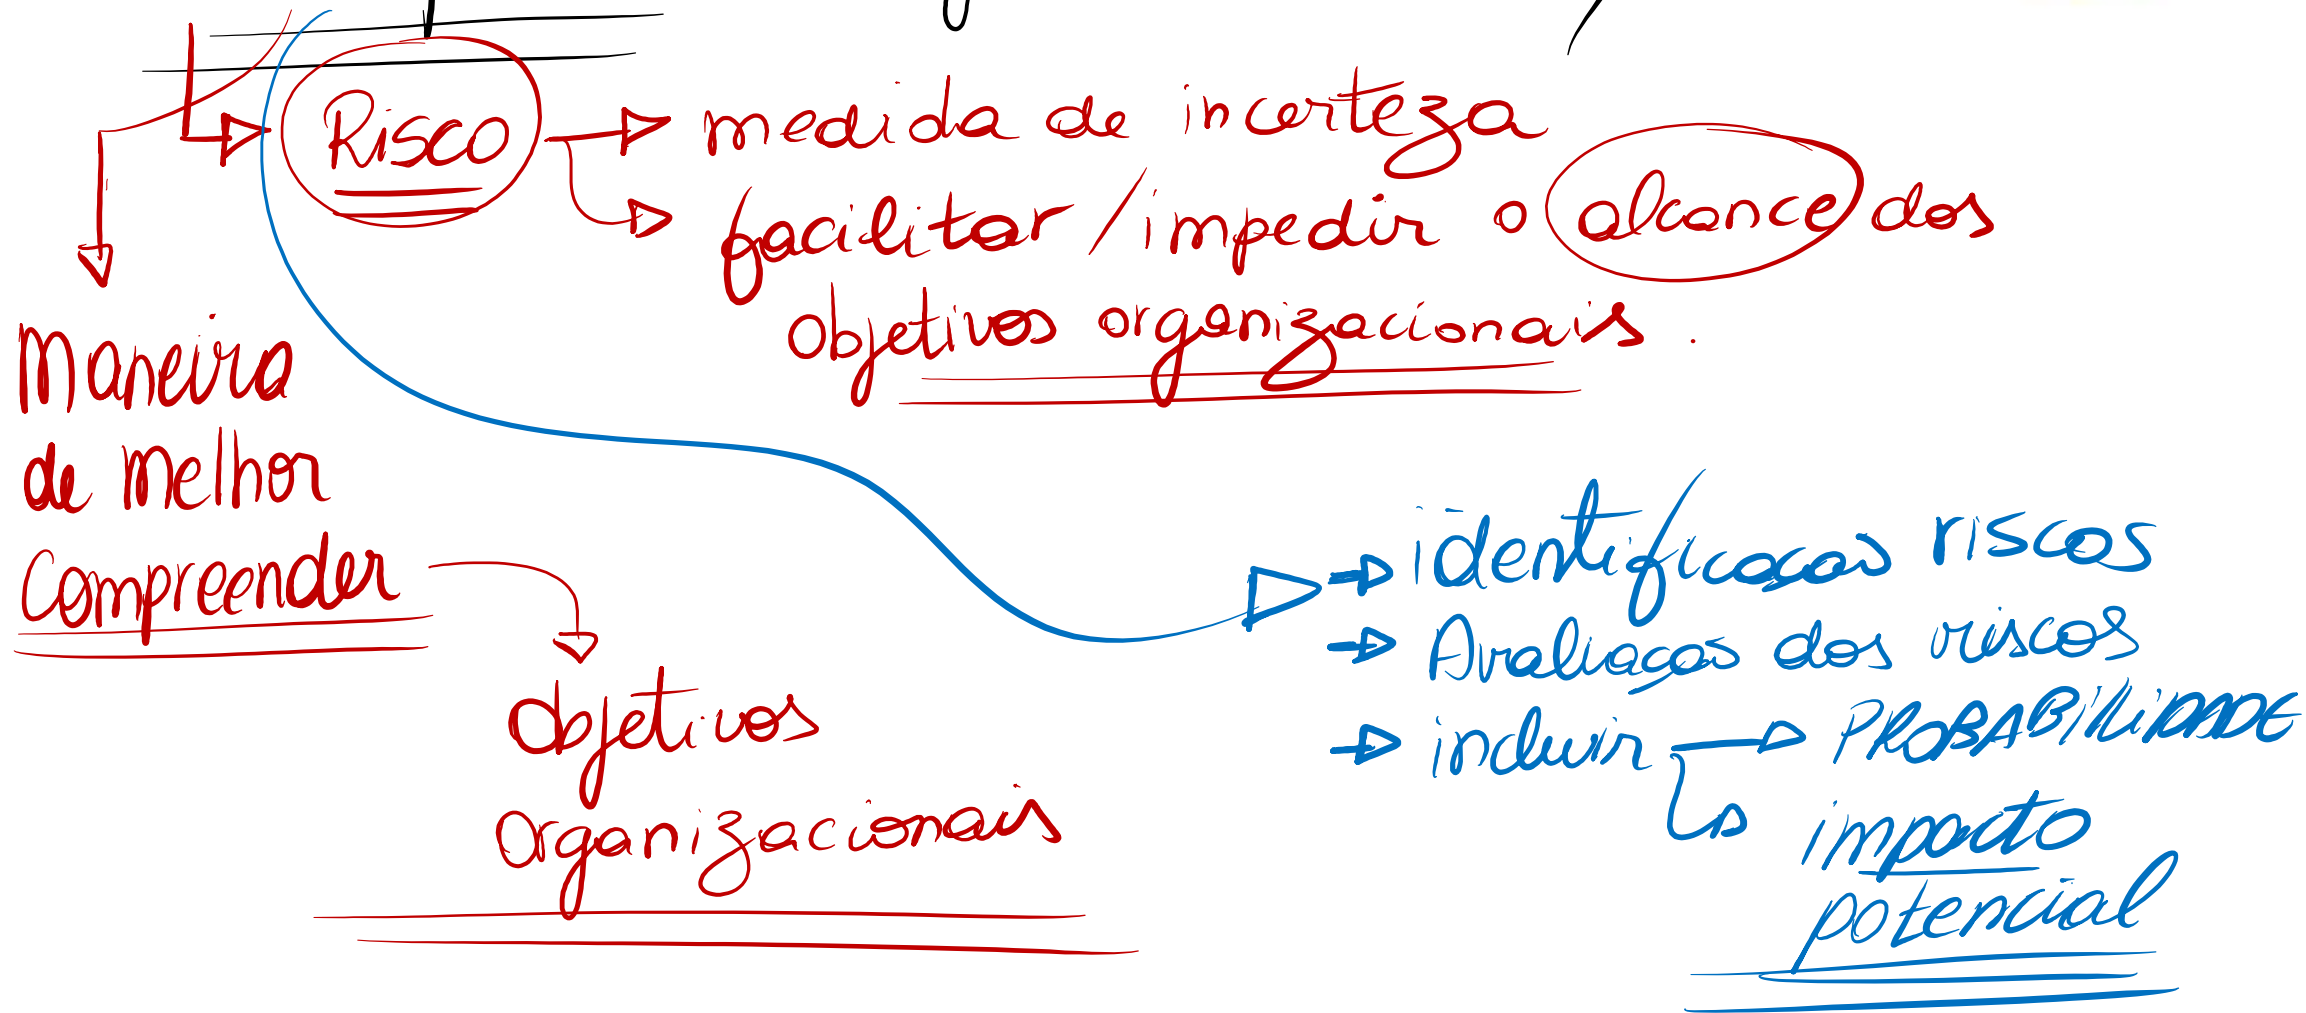 Risco
medida de incerteza
facilitar / impedir o alcance dos
objetivos organizacionais.
Maneira
de melhor
compreender
objetivos
organizacionais
identificação riscos
Avaliação dos riscos
incluir
PROBABILIDADE
impacto
potencial